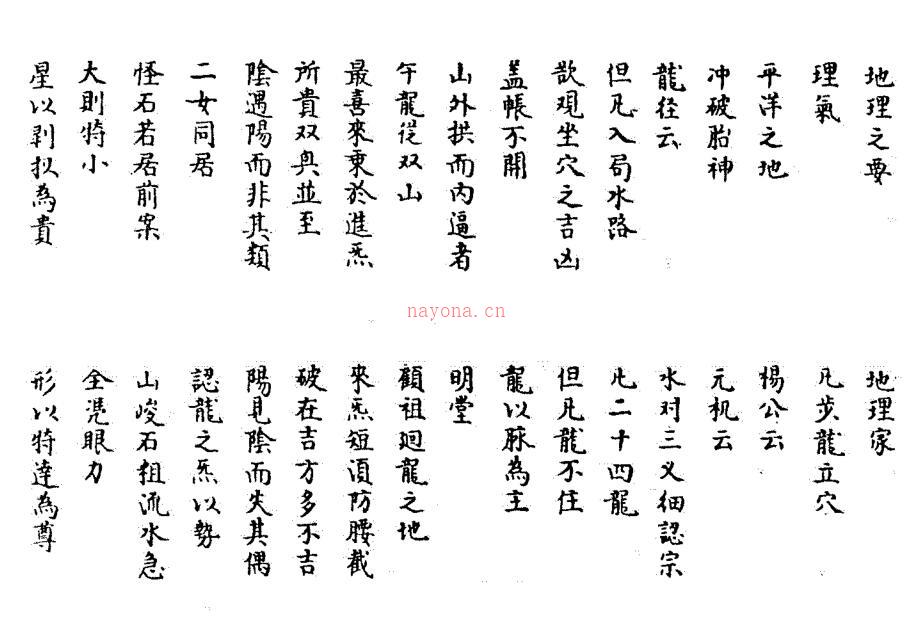 地理之要
理氣
平洋之地
冲破胎神
龍径云
但凡入局水路
欲观坐穴之吉凶
盖帳不開
山外拱而内逼者
午龍從双山
最喜來乘於進炁
所貴双並至
陰遇陽而非其類
二女同居
怪石若居前案
大則特小
星以剥换為貴
nayona.cn
地理家
凡步龍立穴
楊公云
元机云
水对三义细認宗
凡二十四龍
但凡龍不住
龍以脉為主
明堂
顧祖廻龍之地
來炁短須防腰截
破在吉方多不吉
陽見陰而失其偶
認龍之炁以勢
山峻石粗流水急
全凭眼力
形以特達為尊